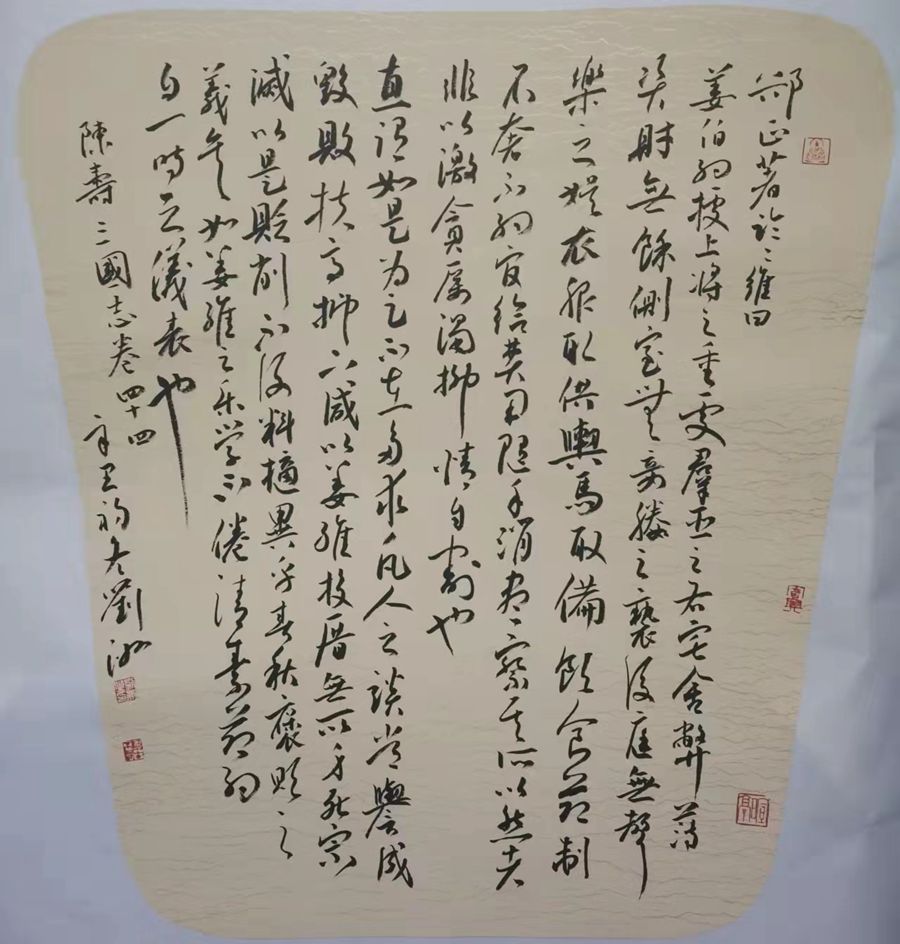 郤正著論〻維曰
姜伯約據上將之重處羣臣之右宅舍弊薄
資財無餘側室無妾媵之褻後庭無聲
樂之娛衣服取供輿馬取備飲食節制
不奢不約官給費用隨手消盡察其所以然者
非以激貪厲濁抑情自割也
直謂如是為足不在多求凡人之談常譽成
毀敗扶高抑下咸以姜維投厝無所身死宗
滅以是貶削不復料擿異乎春秋褒貶之
義矣如姜維之樂學不倦清素節約
自一時之儀表也
陳壽三國志卷四十四
辛丑初冬劉